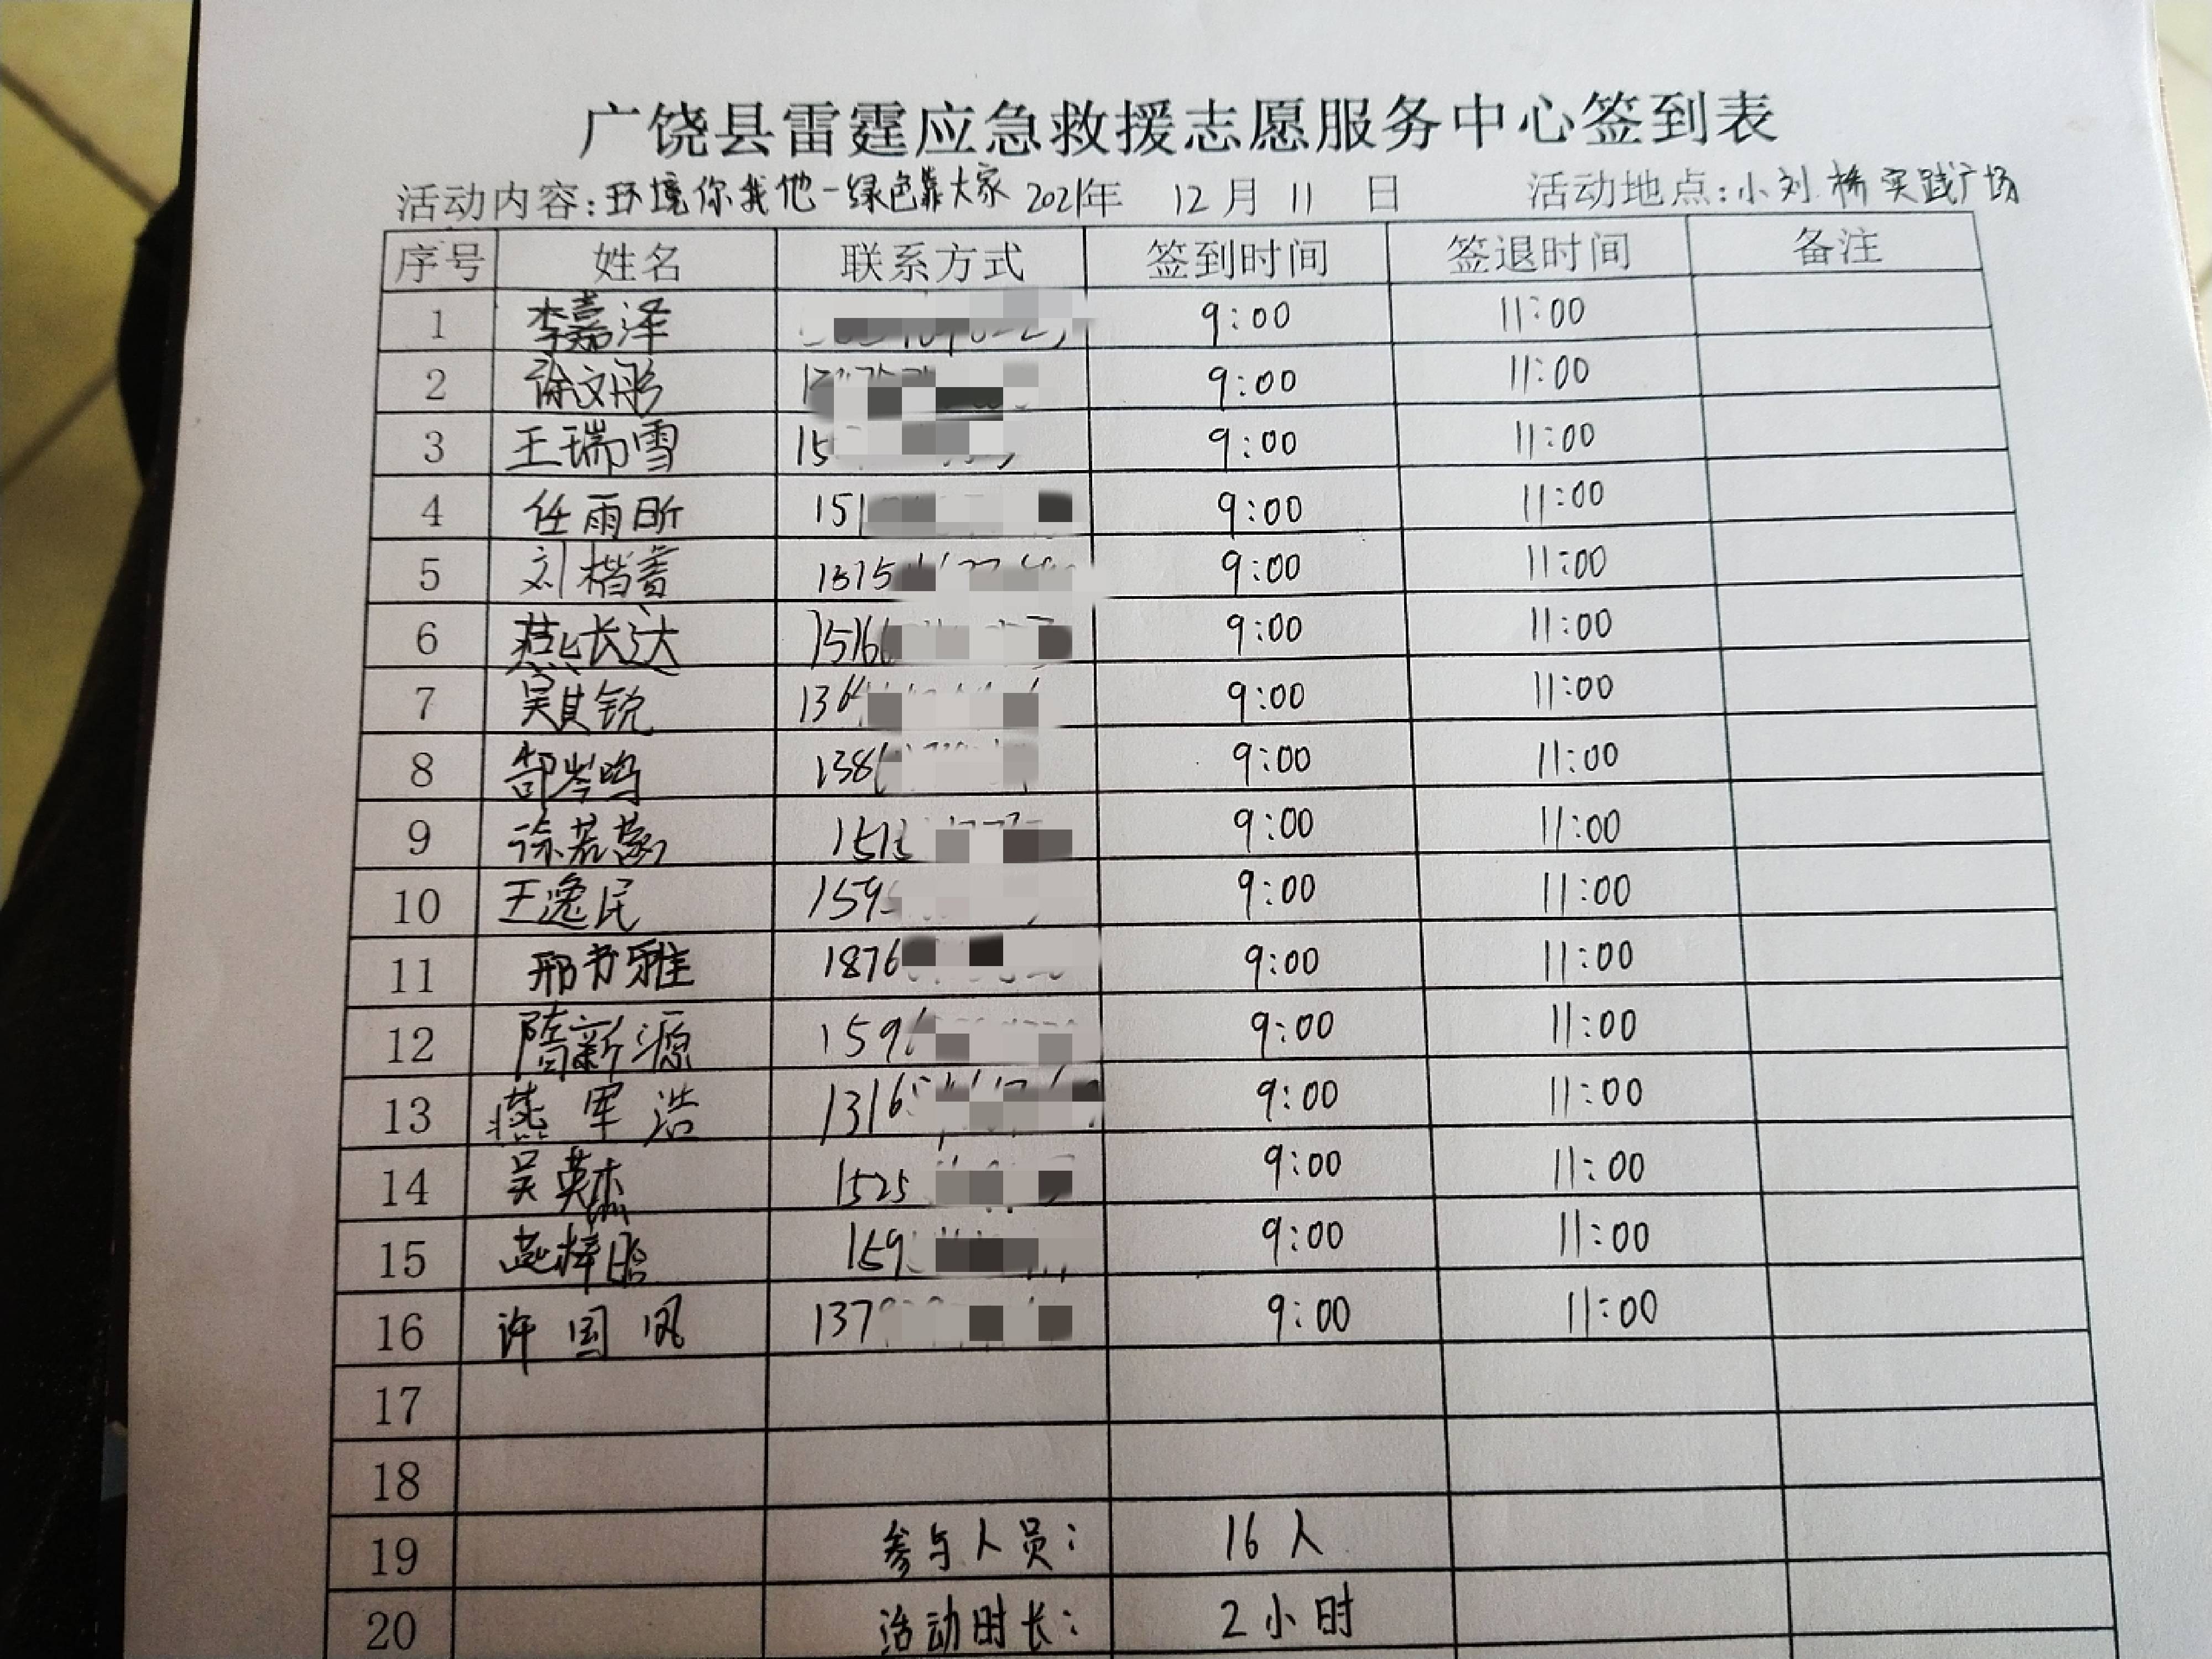 广饶县雷霆应急救援志愿服务中心签到表
活动内容:环境你我他一绿色靠大家 2021年 12月 11 日 活动地点:小刘桥实践广场
序号 姓名 联系方式 签到时间 签退时间 备注
1 李嘉泽 9:00 11:00
2 徐文彤 9:00 11:00
3 王瑞雪 15 9:00 11:00
4 任雨昕 151 9:00 11:00
5 刘楷 1375 9:00 11:00
6 燕长达 1516 9:00 11:00
7 吴其锐 136 9:00 11:00
8 郜岑鸣 138 9:00 11:00
9 徐若 151 9:00 11:00
10 王逸民 159 9:00 11:00
11 邢书雅 1876 9:00 11:00
12 隋新源 159 9:00 11:00
13 燕军浩 1316 9:00 11:00
14 吴英杰 1525 9:00 11:00
15 梓 159 9:00 11:00
16 许国凤 137 9:00 11:00
17
18
19 参与人员: 16人
20 活动时长: 2小时